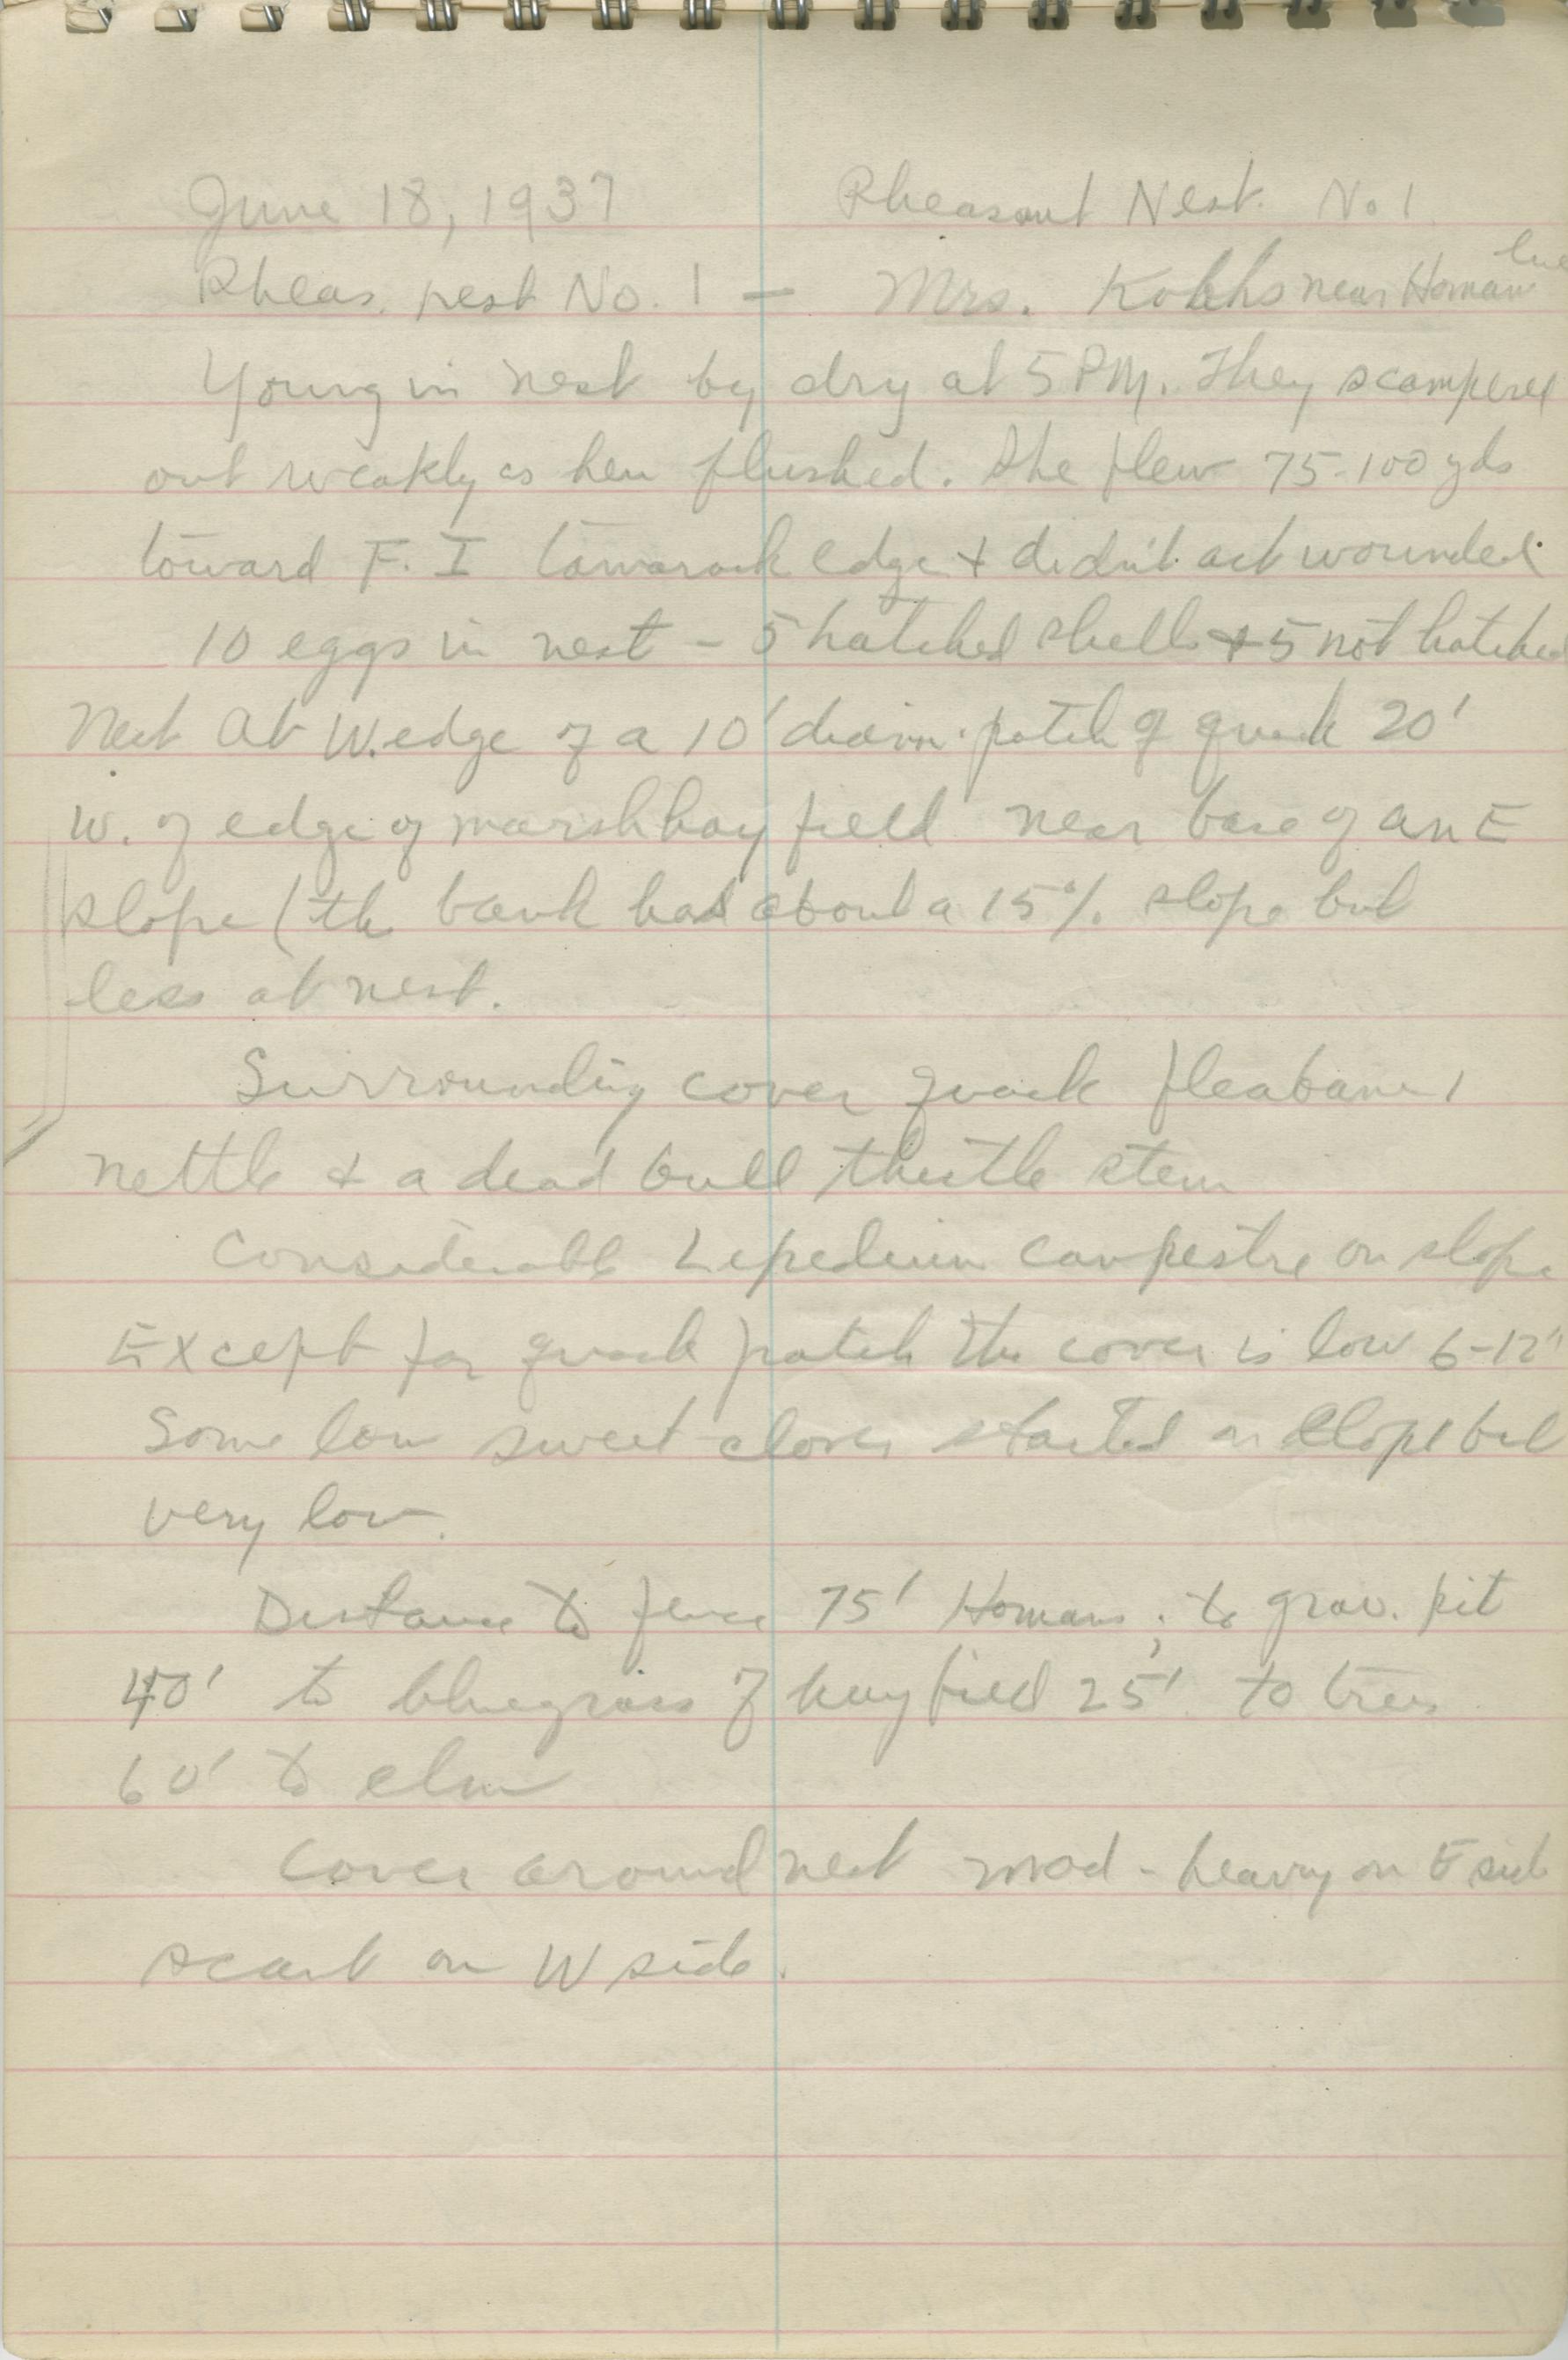 June 18, 1937 Pheasant Nest. No 1.
Pheas. nest No. 1 — Mrs. near Homan line
Young in nest dry at 5 P.M. They scampered
out weakly as hen flushed. She flew 75-100 yds
toward F. I tamarack edge + didn't act wounded.
10 eggs in nest - 5 hatched shells + 5 not hatched
Nest at W. edge of a 10' diam. patch of quack 20'
W. of edge of marsh hay field near base of an E
slope (the bank has about a 15% slope but
less at nest.
Surrounding cover quack fleabane,
nettle + a dead bull thistle stem
Considerable Lepedium campestre on slope
Except for quack patch the cover is low 6-12"
Some low sweet clover started on slope but
very low.
Distance to fence 75' Homans; to grav. pit
40' to bluegrass of hay field 25' to trees
60' to elm
Cover around nest mod - heavy on E side
scant on W side.